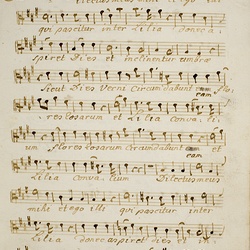 qui pascitur inter Lilia donec a-
spiret Dies et inclinentur umbræ
Sicut Dies Verni Circumdabunt eam Flo-
res Rosarum et Lilia Convali-
um Flores Rosarum Circumdabunt eam et
Lilia Convalium Dilectus meus
mihi et ego illi qui pascitur inter
Lilia donec aspiret dies et in-